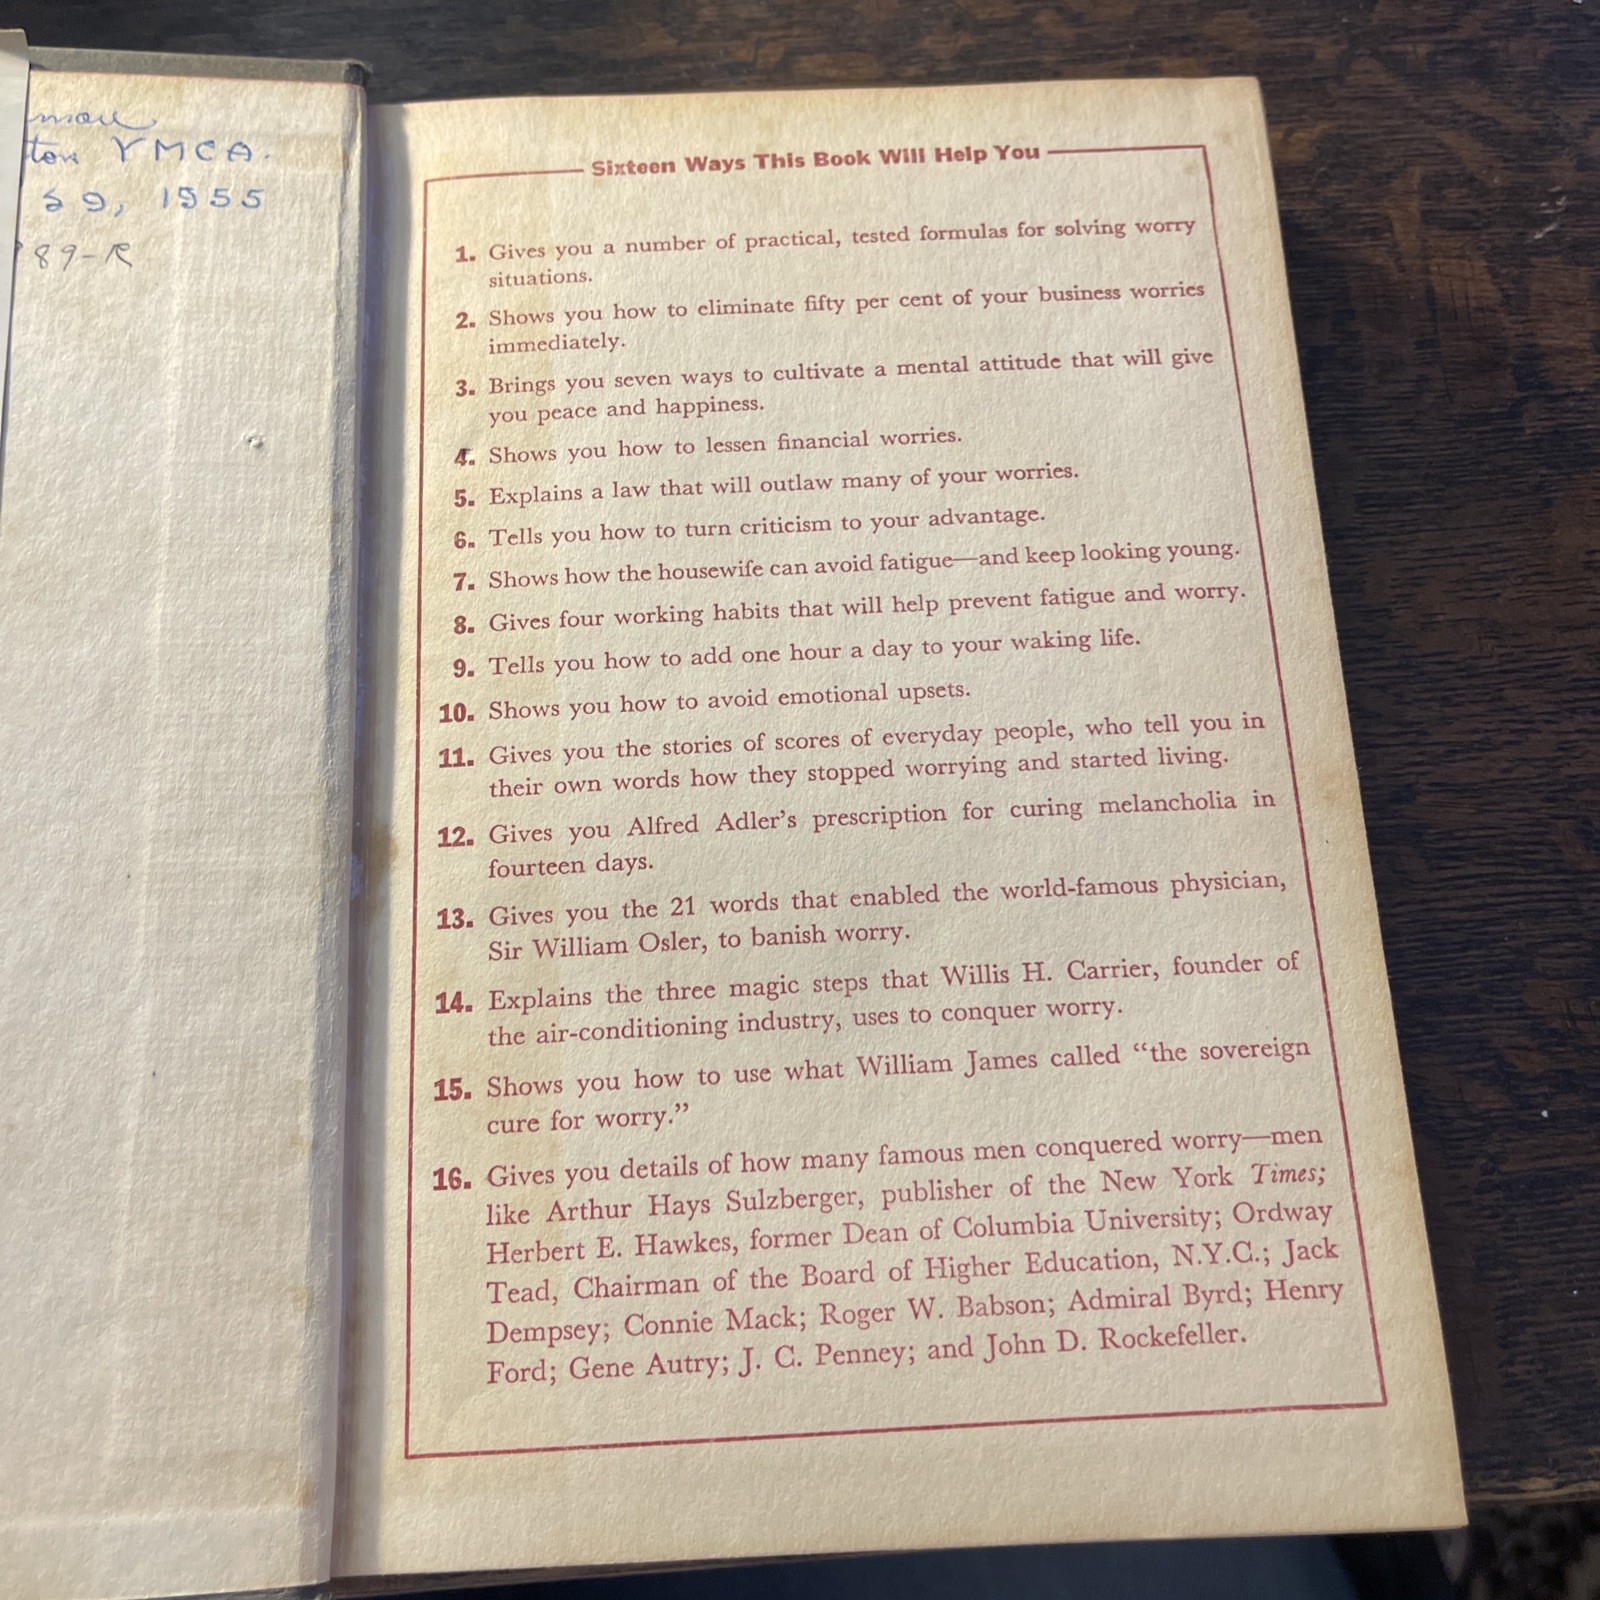 YMCA.
29, 1955
89-R
Sixteen Ways This Book Will Help You
1. Gives you a number of practical, tested formulas for solving worry
situations.
2. Shows you how to eliminate fifty per cent of your business worries
immediately.
3. Brings you seven ways to cultivate a mental attitude that will give
you peace and happiness.
4. Shows you how to lessen financial worries.
5. Explains a law that will outlaw many of your worries.
6. Tells you how to turn criticism to your advantage.
7. Shows how the housewife can avoid fatigue—and keep looking young.
8. Gives four working habits that will help prevent fatigue and worry.
9. Tells you how to add one hour a day to your waking life.
10. Shows you how to avoid emotional upsets.
11. Gives you the stories of scores of everyday people, who tell you in
their own words how they stopped worrying and started living.
12. Gives you Alfred Adler's prescription for curing melancholia in
fourteen days.
13. Gives you the 21 words that enabled the world-famous physician,
Sir William Osler, to banish worry.
14. Explains the three magic steps that Willis H. Carrier, founder of
the air-conditioning industry, uses to conquer worry.
15. Shows you how to use what William James called “the sovereign
cure for worry.”
16. Gives you details of how many famous men conquered worry—men
like Arthur Hays Sulzberger, publisher of the New York Times;
Herbert E. Hawkes, former Dean of Columbia University; Ordway
Tead, Chairman of the Board of Higher Education, N.Y.C.; Jack
Dempsey; Connie Mack; Roger W. Babson; Admiral Byrd; Henry
Ford; Gene Autry; J. C. Penney; and John D. Rockefeller.